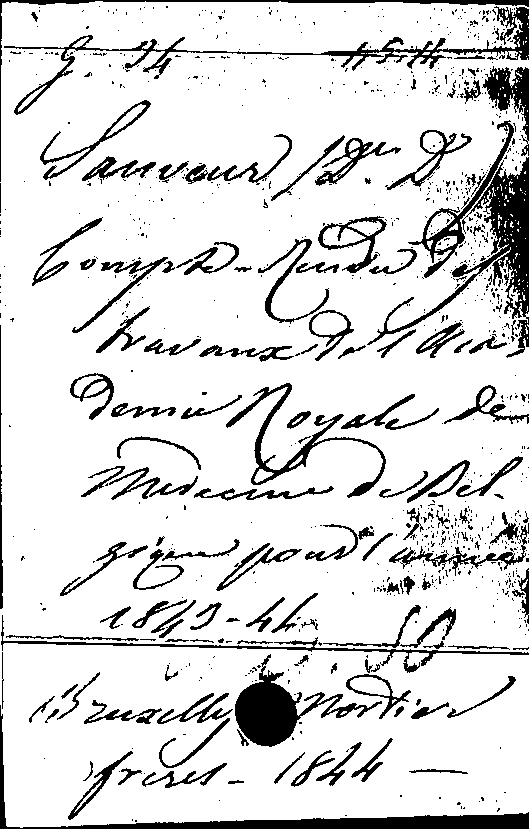 G. 34 1514
Sauveur (Dr. D
Compte-Rendu des
travaux de l'Aca-
demie Royale de
Medecine de Bel-
gique pour l'année
1843-44
50
Bruxelles Mortier
freres - 1844 —